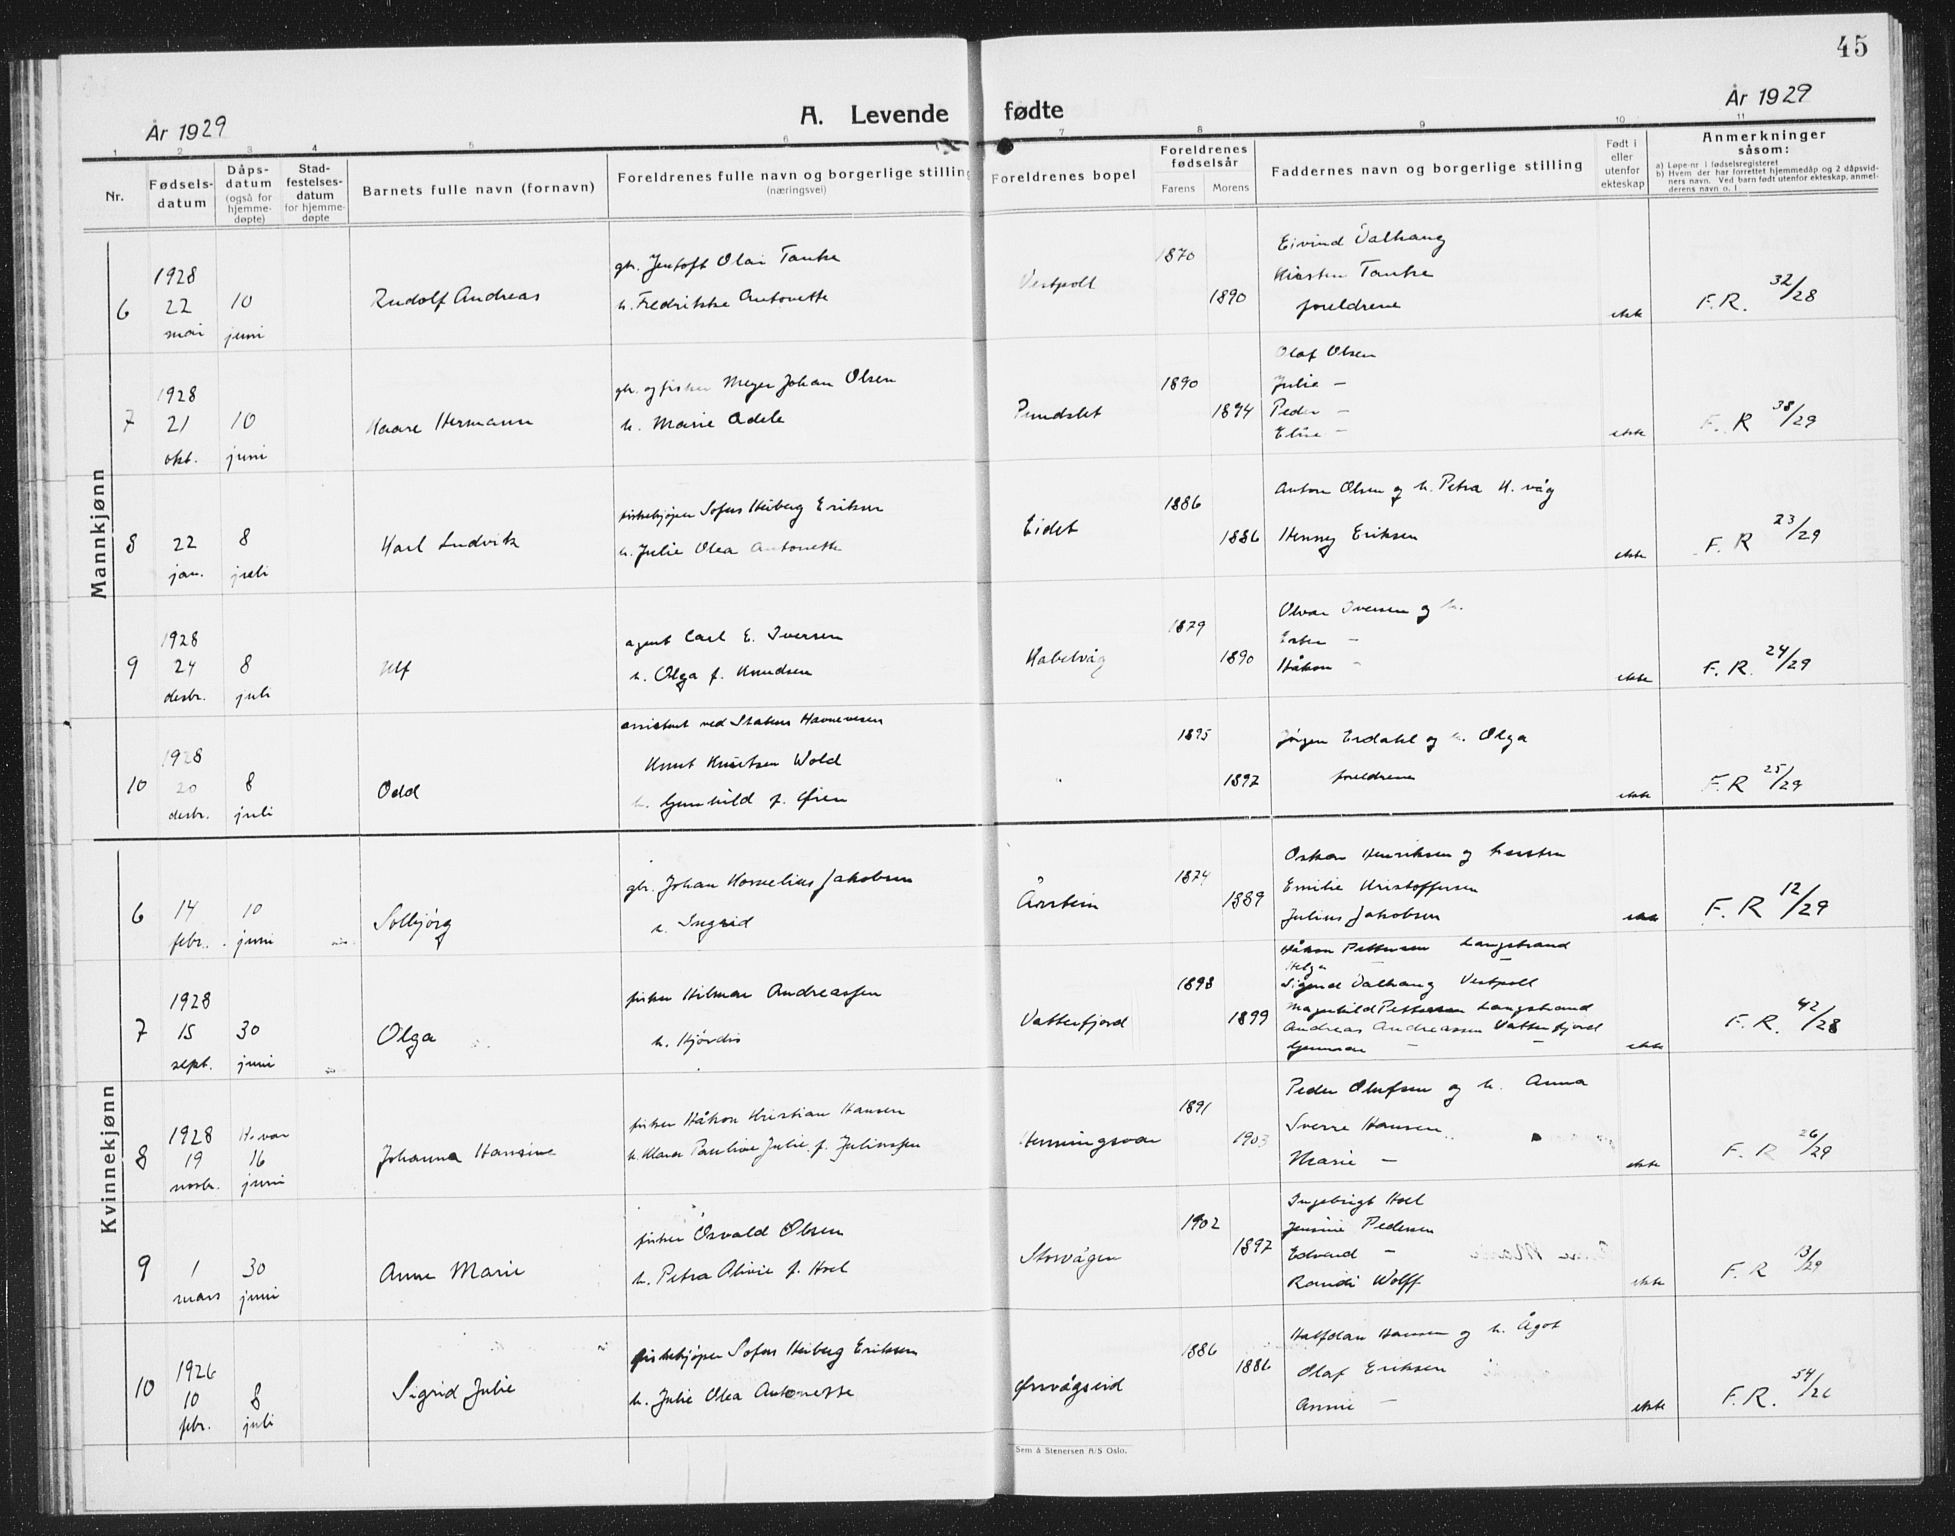 45
År 1929
A. Levende fødte
År 1929
1 2 3 4 5 6 7 8 9 10 11
Nr.
Fødsels-
datum
Dåps-
datum
(også for
hjemme-
døpte)
Stad-
festelses-
datum
for hjemme-
døpte
Barnets fulle navn (fornavn)
Foreldrenes fulle navn og borgerlige stilling
(næringsvei)
Foreldrenes bopel
Foreldrenes
fødselsår
Farens Morens
Faddernes navn og borgerlige stilling
Født i
eller
utenfor
ekteskap
Anmerkninger
såsom:
a) Løpe-nr. i fødselsregisteret
b) Hvem der har forrettet hjemmedåp og 2 dåpsvid-
ners navn. Ved barn født utenfor ekteskap, anmel-
derens navn o. l.
Mannkjønn
6
1928
22
mai
10
juni
Rudolf Andreas
gbr. Jentoft Olai Tanke
h. Fredrikke Antonette
Vestpoll
1870
1890
Eivind Valhaug
Kirsten Tanke
foreldrene
ekte
F. R. 32/28
7
1928
21
okt.
10
juni
Kaare Hermann
gbr. og fisker Meyer Johan Olsen
h. Marie Adele
Pundslet
1890
1894
Olaf Olsen
Julie —
Peder —
Elise —
ekte
F. R 38/29
8
22
jan.
8
juli
Karl Ludvik
fiskekjøper Sofus Heiberg Eriksen
h. Julie Olea Antonette
Eidet
1886
1886
Anton Olsen og h. Petra K. våg
Henny Eriksen
ekte
F. R 23/29
9
1928
24
desbr.
8
juli
Ulf
agent Carl E. Iversen
h. Olga f. Knudsen
Kabelvåg
1879
1890
Olvar Iversen og h.
Ester —
Håkon —
ekte
F. R. 24/29
10
1928
20
desbr.
8
juli
Odd
assistent ved Statens Havnevesen
Knut Knutsen Wold
h. Gunhild f. Øien
1895
1897
Jørgen Erdahl og h. Olga
foreldrene
ekte
F. R 25/29
Kvinnekjønn
6
14
febr.
10
juni
Solbjørg
gbr. Johan Kornelius Jakobsen
h. Ingrid
Årstein
1874
1889
Oskar Henriksen og
Emilie Kristoffersen
Julius Jakobsen
ekte
F. R 12/29
7
1928
15
sept.
30
juni
Olga
fisker Hilmar Andreassen
h. Hjørdis
Vatterfjord
1898
1899
Håkon Pettersen Langstrand
Helga —
Sigurd Valhaug Vestpoll
Magnhild Pettersen Langstrand
Andreas Andreassen Vatterfjord
Gunnar — —
ekte
F. R. 42/28
8
1928
19
novbr.
H. vær
16
juni
Johanna Hansine
fisker Håkon Kristian Hansen
h. Klara Pauline Julie f. Juliussen
Henningsvær
1891
1903
Peder Olufsen og h. Anna
Sverre Hansen
Marie —
ekte
F. R 26/29
9
1
mars
30
juni
Anne Marie
fisker Osvald Olsen
h. Petra Alivie f. Hoel
Storvågen
1902
1897
Ingebrigt Hoel
Jensine Pedersen
Edvard —
Randi Wolff
ekte
F. R 13/29
10
1926
10
febr.
8
juli
Sigrid Julie
fiskekjøper Sofus Heiberg Eriksen
h. Julie Olea Antonette
Ørsvågseid
1886
1886
Halfdan Hansen og h. Ågot
Olaf Eriksen
Annie —
ekte
F. R. 54/26
Sem & Stenersen A/S Oslo.